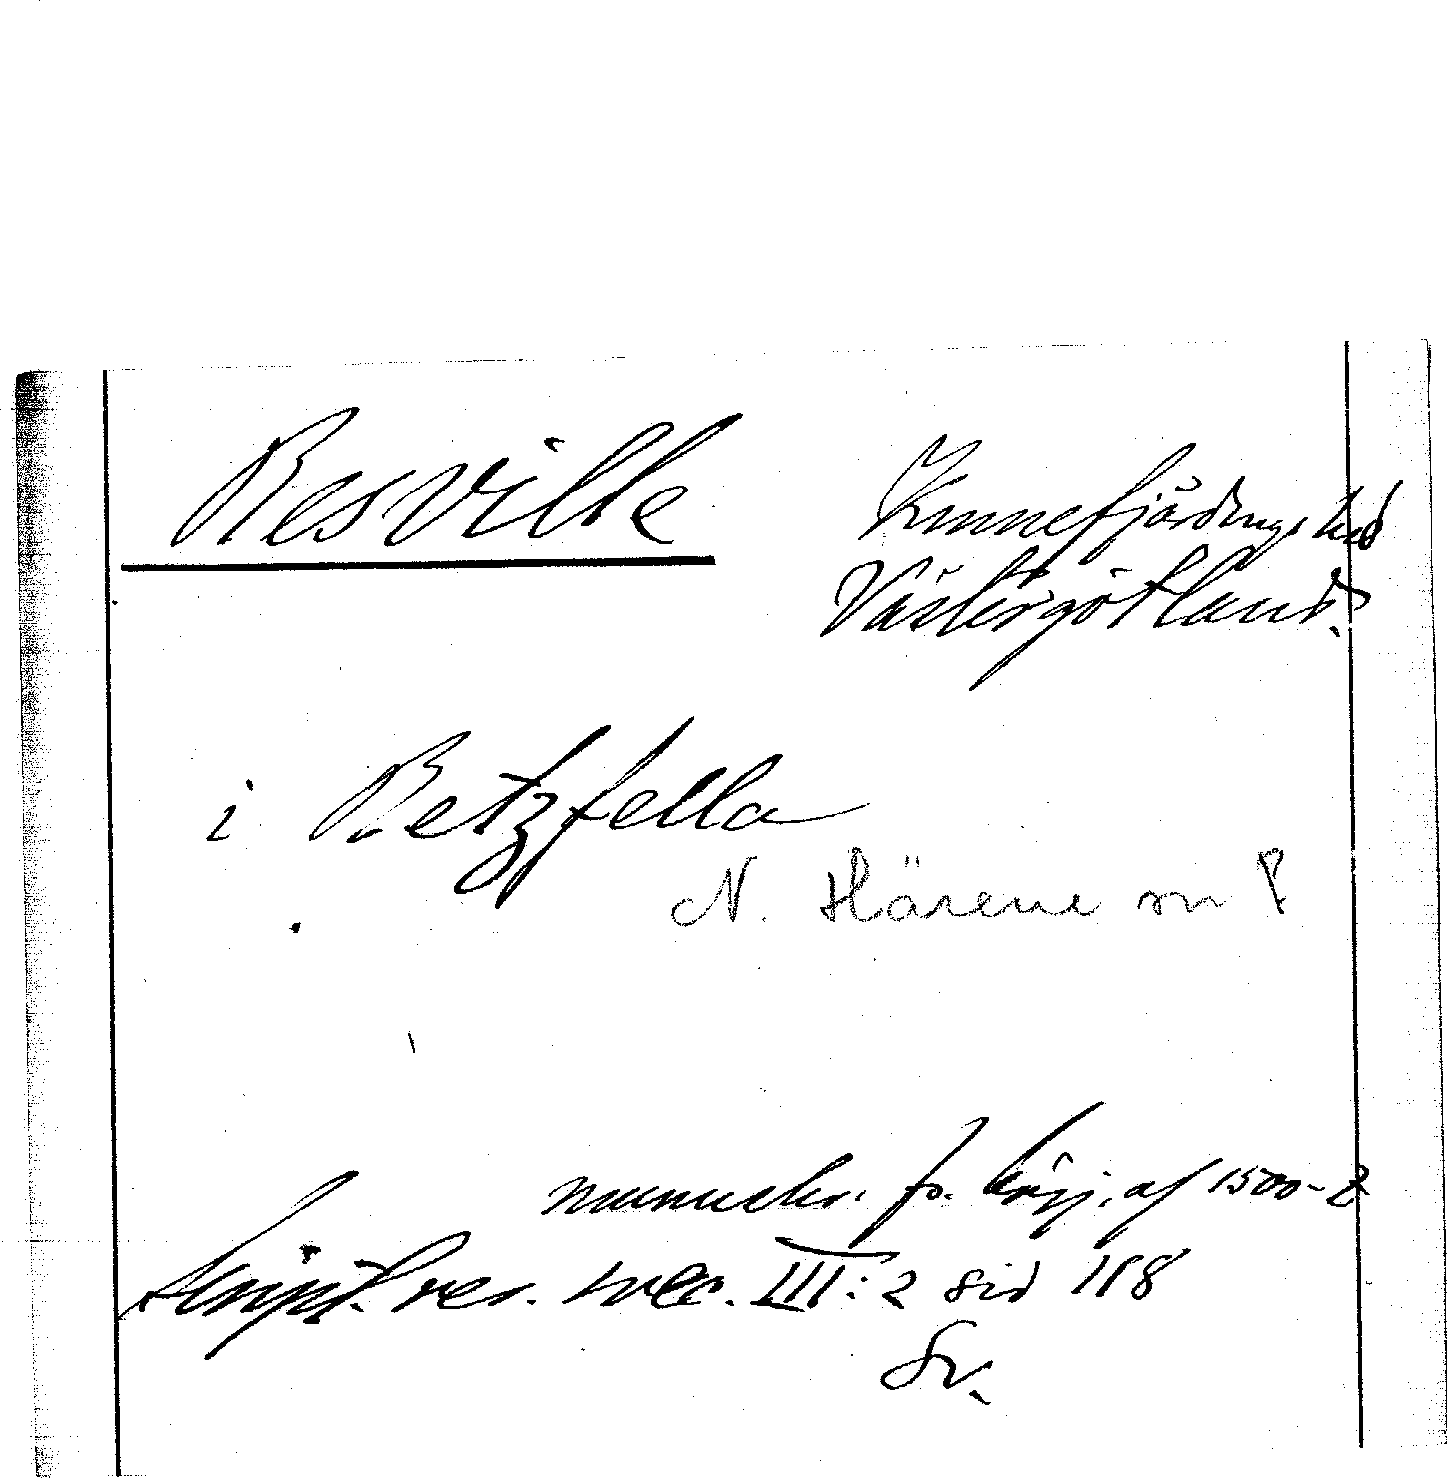 Resville
Kinnefjärdings hd
Västergötland.
i Retzfella
N. Härene sn ?
manuskr. fr. börj. af 1500-t
Script. rer. svec. III: 2 sid 118
Sv.